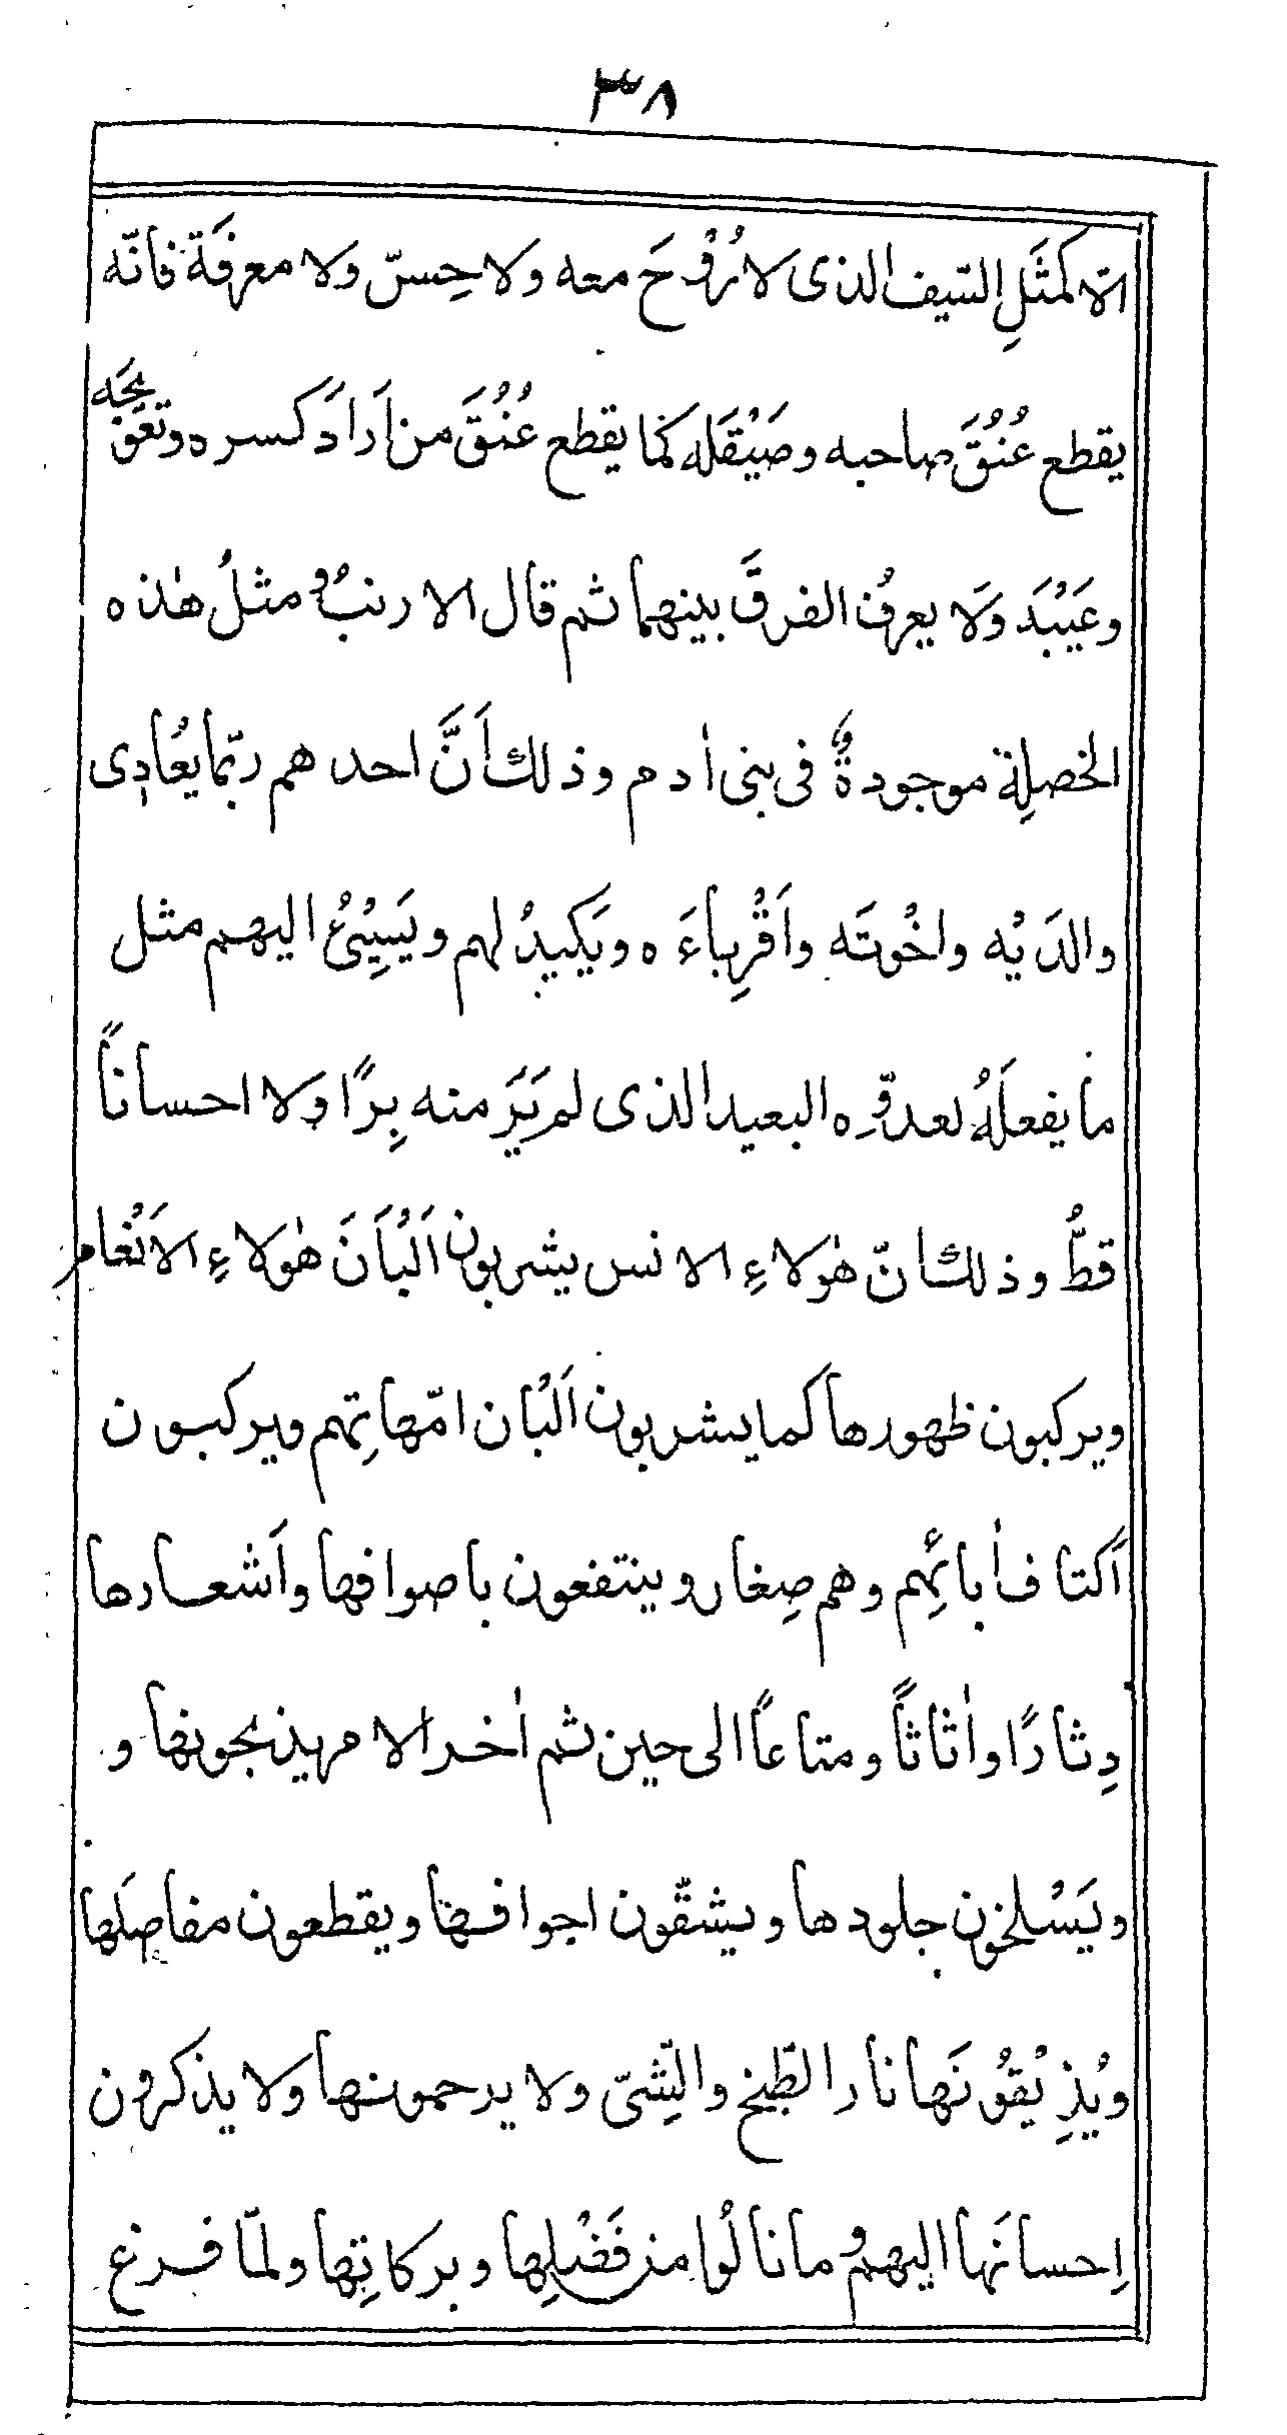 ٣٨
الّا كمَثَلِ السّيف الذى لا رُوْحَ معه ولا حِسّ ولا معرفَة فانّه
يقطع عُنُقَ صاحبه وصَيْقَله كما يقطع عُنُقَ من اَرادَ كسره وتعو يجَه
وعَيْبَه وَلا يعرفُ الفرقَ بينهما ثم قال الارنبُ ومثلُ هٰذه
الخصلِة موجودةٌ فى بنى اٰدم وذلك اَنَّ احدهم ربّما يعُادِى
والدَيْه واخْوتَه واَقْرِباءَه ويَكيدُ لهم ويَسِيْئُ اليهم مثل
ما يفعلَهُ لعدوّه البعيد الذى لم يَرَ منه بِرًا ولا احساناً
قطُّ وذلك انّ هٰولاءِ الانس يشربون اَلْبَاَنَ هٰولاءِ الاَنْعام
ويركبون ظهورها كما يشربون اَلْبان امّهاتِهم ويركبون
اَكتاف اٰبائِهم وهم صِغار وينتفعون باصوافها واَشعارها
دِثارًا واَثاثاً ومتاعاً الى حين ثم اٰخر الامر يذبحونها و
ويَسْلخون جلودها ويشقّون اجوافها ويقطعون مفاصِلَها
ويُذِيْقُونَها نار الطّبخ والشِّىّ ولا يرحمونها ولا يذكرون
اِحسانَها اليهم وما نالُوا من فَضْلِها وبركاتِها ولمّا فرغ